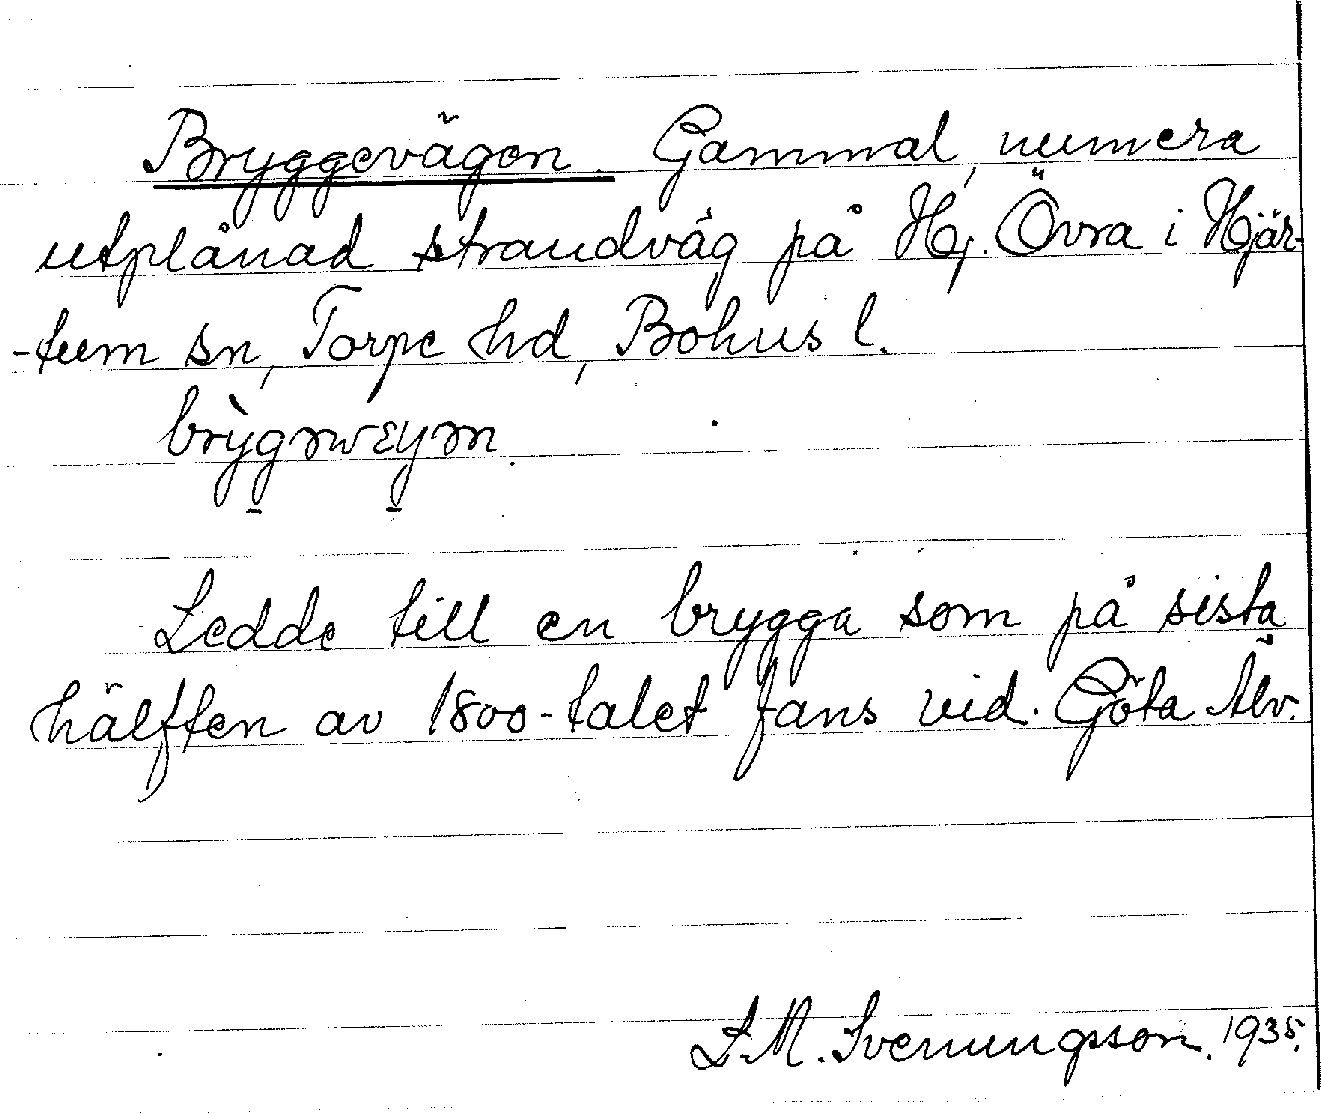 Bryggevägen. Gammal, numera
utplånad strandväg på Hj. Övra i Hjär-
-tum sn, Torpe hd, Bohus l.
Ledde till en brygga som på sista
hälften av 1800-talet fans vid. Göta Älv.
S.M. Svenungsson. 1935.